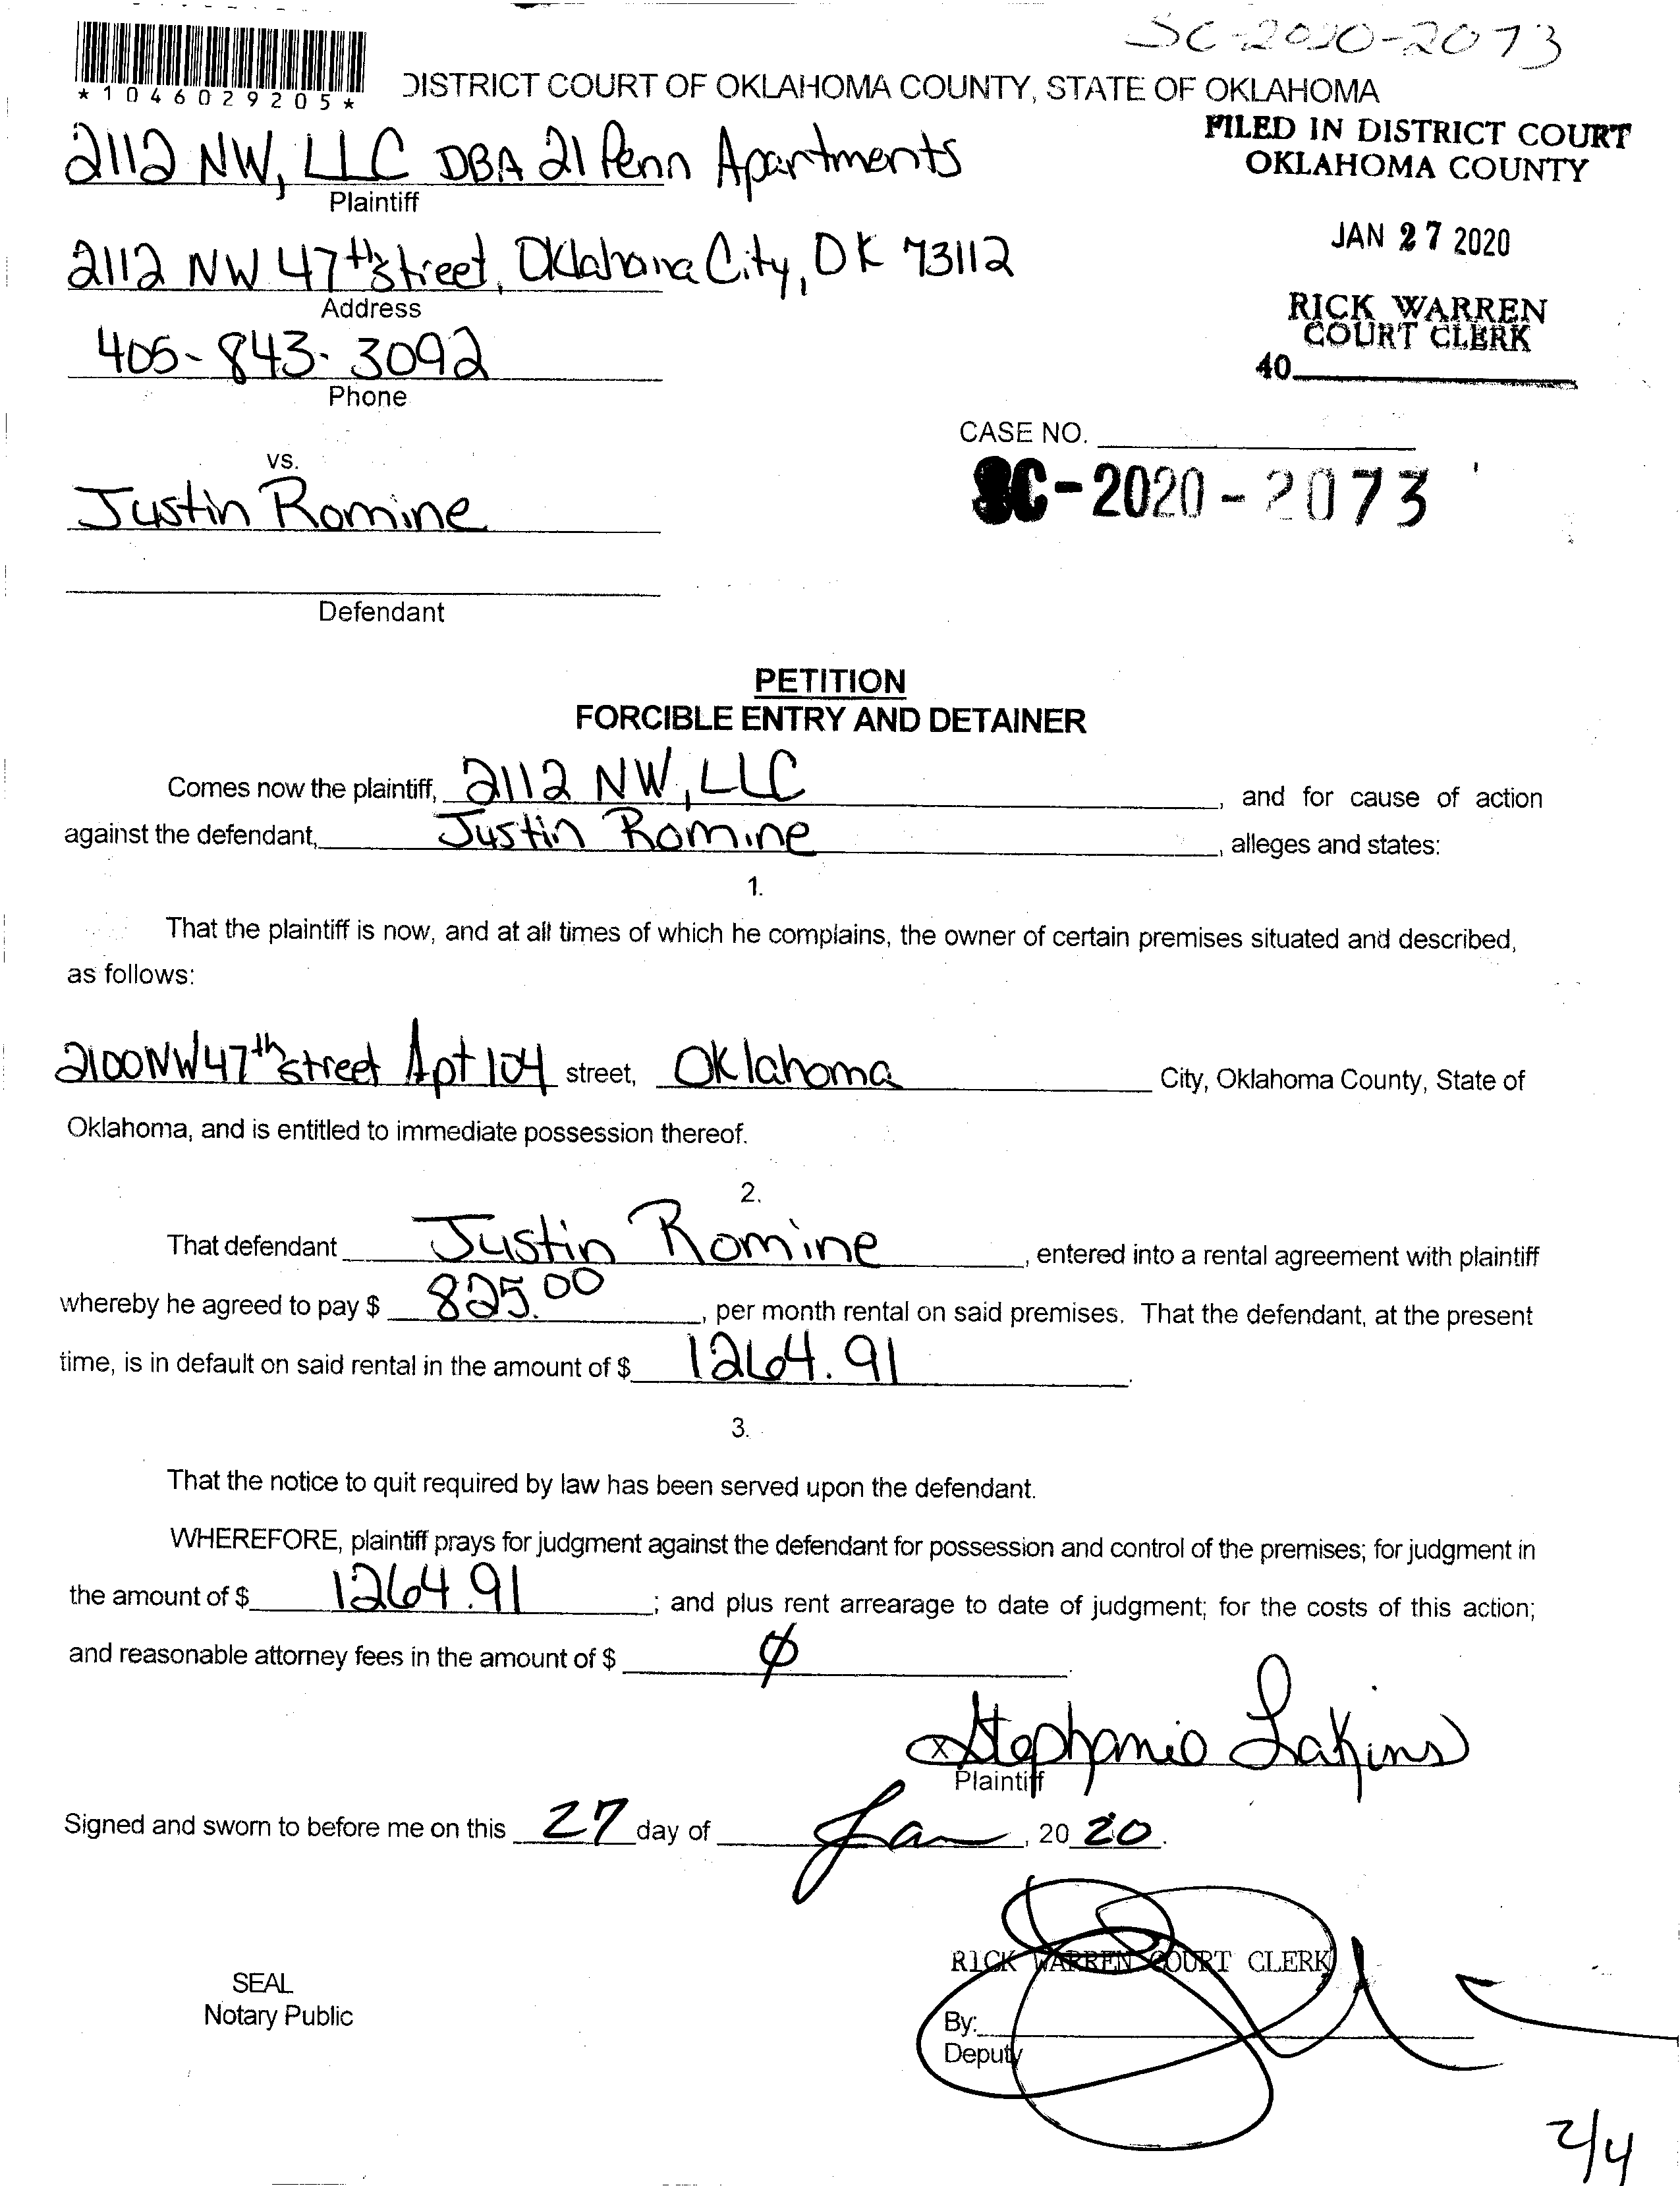 SC-2020-2073
*1046029205*
DISTRICT COURT OF OKLAHOMA COUNTY, STATE OF OKLAHOMA
FILED IN DISTRICT COURT
OKLAHOMA COUNTY
JAN 27 2020
RICK WARREN
COURT CLERK
40
2112 NW, LLC DBA 21 Penn Apartments
Plaintiff
2112 NW 47th Street, Oklahoma City, OK 73112
Address
405-843-3092
Phone
CASE NO.
SC-2020-2073
vs.
Justin Romine
Defendant
PETITION
FORCIBLE ENTRY AND DETAINER
Comes now the plaintiff, 2112 NW, LLC, and for cause of action
against the defendant, Justin Romine, alleges and states:
1.
That the plaintiff is now, and at all times of which he complains, the owner of certain premises situated and described,
as follows:
2100 NW 47th street Apt 104 street, Oklahoma City, Oklahoma County, State of
Oklahoma, and is entitled to immediate possession thereof.
2.
That defendant Justin Romine, entered into a rental agreement with plaintiff
whereby he agreed to pay $ 825.00, per month rental on said premises. That the defendant, at the present
time, is in default on said rental in the amount of $ 1264.91.
3.
That the notice to quit required by law has been served upon the defendant.
WHEREFORE, plaintiff prays for judgment against the defendant for possession and control of the premises; for judgment in
the amount of $ 1264.91; and plus rent arrearage to date of judgment; for the costs of this action;
and reasonable attorney fees in the amount of $ ϕ.
x Stephanie Lakins
Plaintiff
Signed and sworn to before me on this 27 day of Jan, 20 20.
RICK WARREN COURT CLERK
SEAL
Notary Public
By:
Deputy
2/4